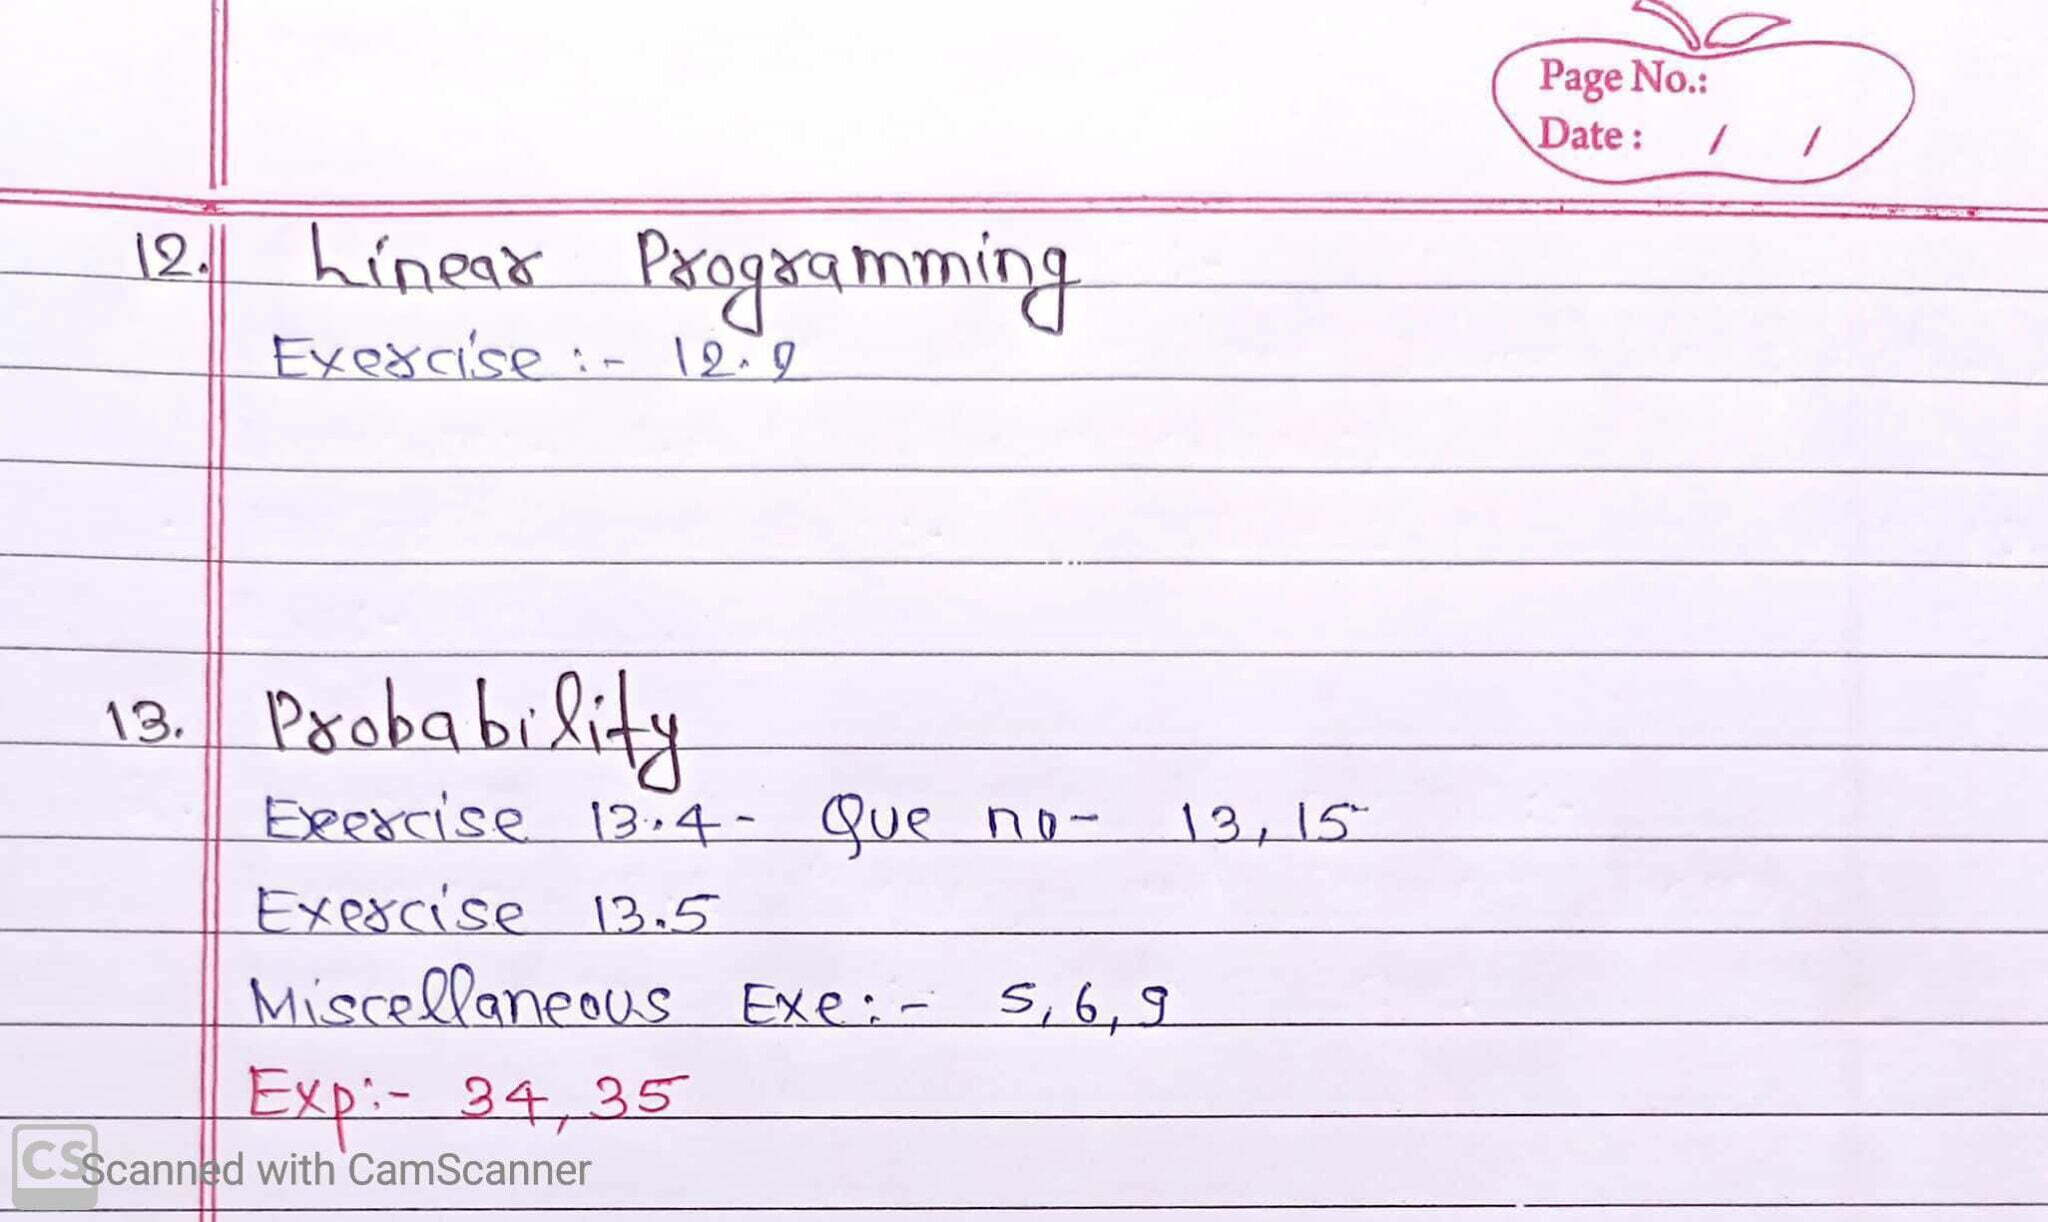 Page No.:
Date: / /
12. Linear Programming
Exercise :- 12.2
13. Probability
Exercise 13.4 - Que no - 13, 15
Exercise 13.5
Miscellaneous Exe :- 5, 6, 9
Exp :- 34, 35
CS Scanned with CamScanner